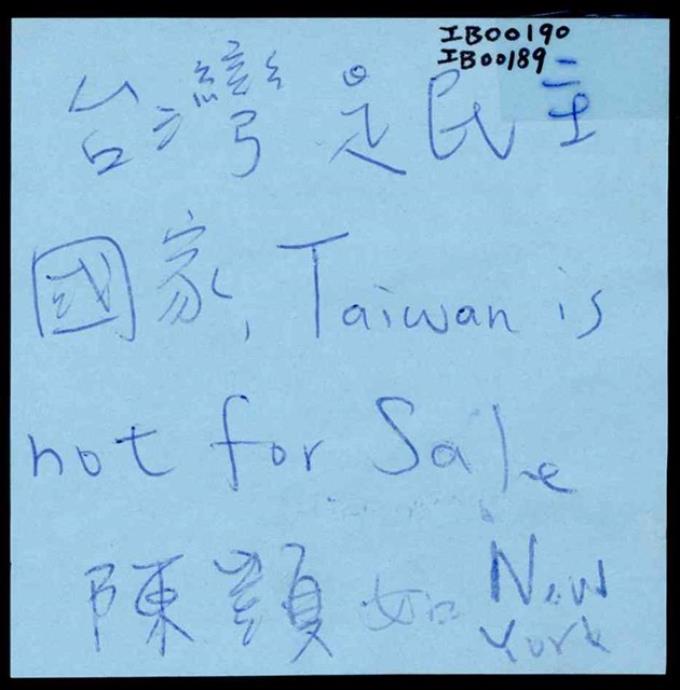 IB00190
IB00189
台灣是民主
國家, Taiwan is
not for Sale
陳穎如 New
York